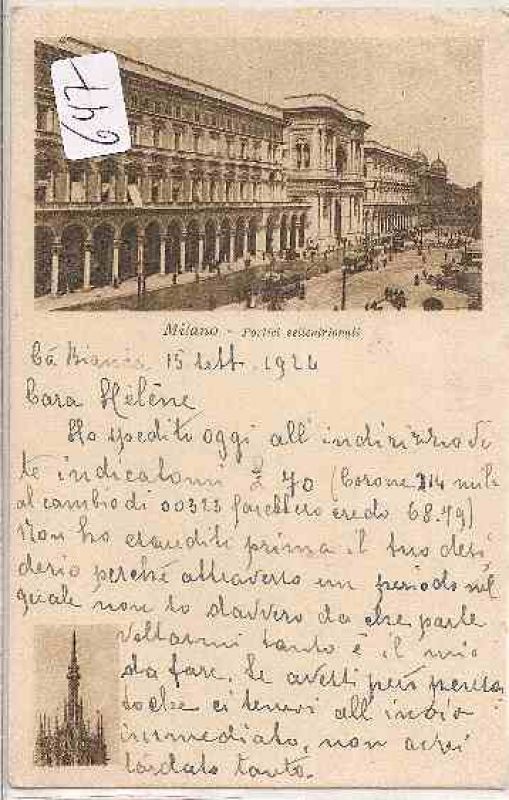 647
Milano - Portici settentrionali
Cà Bianca 15 sett. 1924
Cara Helène
Ho spedito oggi all'indirizzo di
te indicatomi £ 70 (Corone 214 mila
al cambio di 00323 farebbero credo 68.49)
Non ho esaudito prima il tuo desi
derio perchè attraverso un periodo nel
quale non so davvero da che parte
voltarmi tanto è il mio
da fare. Se avessi però
che ci tenevi all'invio
immediato, non avrei
tardato tanto.